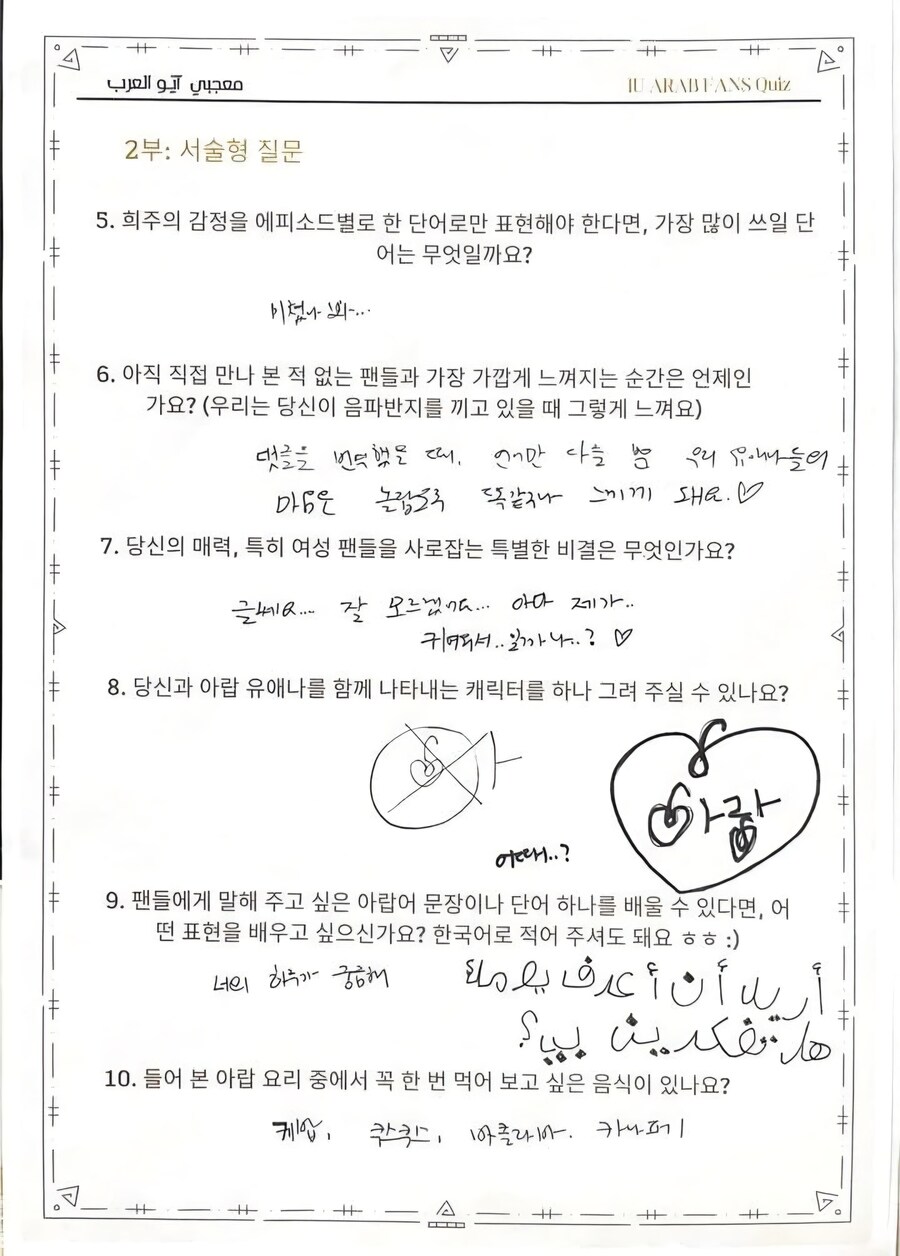 معجبي آيو العرب
IU ARAB FANS Quiz
2부: 서술형 질문
5. 희주의 감정을 에피소드별로 한 단어로만 표현해야 한다면, 가장 많이 쓰일 단
어는 무엇일까요?
미쳤나 봐...
6. 아직 직접 만나 본 적 없는 팬들과 가장 가깝게 느껴지는 순간은 언제인
가요? (우리는 당신이 음파반지를 끼고 있을 때 그렇게 느껴요)
댓글을 번역했을 때, 언어만 다를 뿐 우리 유애나들의
마음은 놀랍도록 똑같구나 느끼게 돼요.♡
7. 당신의 매력, 특히 여성 팬들을 사로잡는 특별한 비결은 무엇인가요?
글쎄요... 잘 모르겠거든... 아마 제가..
귀여워서..일까나..? ♡
8. 당신과 아랍 유애나를 함께 나타내는 캐릭터를 하나 그려 주실 수 있나요?
아랍
어때..?
9. 팬들에게 말해 주고 싶은 아랍어 문장이나 단어 하나를 배울 수 있다면, 어
떤 표현을 배우고 싶으신가요? 한국어로 적어 주셔도 돼요 ㅎㅎ :)
너의 하루가 궁금해
أريد أن أعرف يومك
هل تفكرين بي؟
10. 들어 본 아랍 요리 중에서 꼭 한 번 먹어 보고 싶은 음식이 있나요?
케밥, 쿠스쿠스,